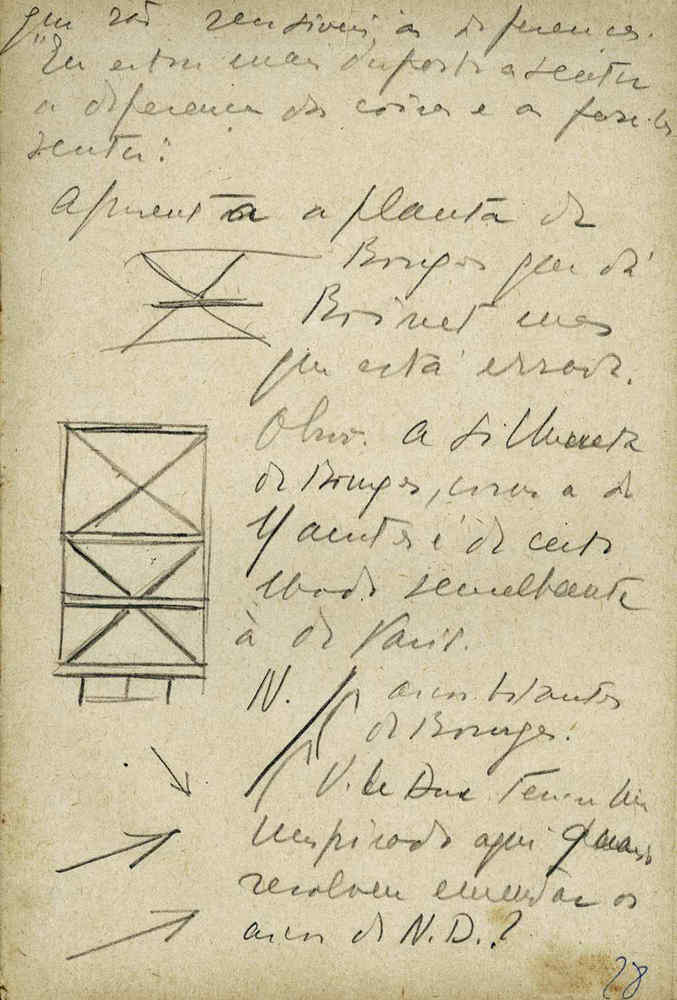 que são sensíveis às diferenças.
"Eu estou mais disposto a sentir
a diferença das coisas e a fazê-las
sentir".
Apresenta a planta de
Bourges que dá
Boinet mas
que está errada.
Obs. A silhueta
de Bourges, como a de
Mantes é de certo
modo semelhante
à de Paris.
N. arcos botantes
de Bourges.
V. le Duc teria se
inspirado aqui quando
resolveu emendar os
arcos de N.D.?
28